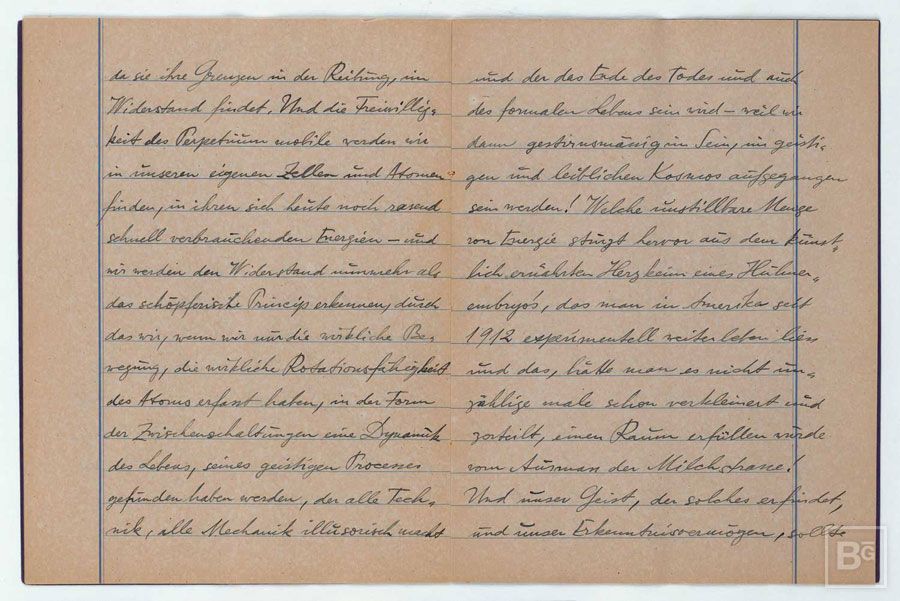 da sie ihre Grenzen in der Reibung, im
Widerstand findet. Und die Freiwillig=
keit des Perpetuum mobile werden wir
in unseren eigenen Zellen und Atomen
finden, in ihren sich heute noch rasend
schnell verbrauchenden Energien – und
wir werden den Widerstand nunmehr als
das schöpferische Princip erkennen, durch
das wir, wenn wir nur die wirkliche Be=
wegung, die wirkliche Rotationsfähigkeit
des Atoms erfasst haben, in der Form
der Zwischenschaltungen eine Dynamik
des Lebens, seines geistigen Processes
gefunden haben werden, der alle Tech=
nik, alle Mechanik illusorisch macht
und der das Ende des Todes und auch
des formalen Lebens sein wird – weil wir
dann gestirnsmässig im Sein, im geisti=
gen und leiblichen Kosmos aufgegangen
sein werden! Welche unstillbare Menge
von Energie stürzt hervor aus dem künst=
lich ernährten Herzkeim eines Hühner=
embryo's, das man in Amerika seit
1912 experimentell weiterleben liess
und das, hätte man es nicht un=
zählige male schon verkleinert und
zerteilt, einen Raum erfüllen würde
vom Ausmass der Milchstrasse!
Und unser Geist, der solches erfindet,
und unser Erkenntnisvermögen, sollte
BG